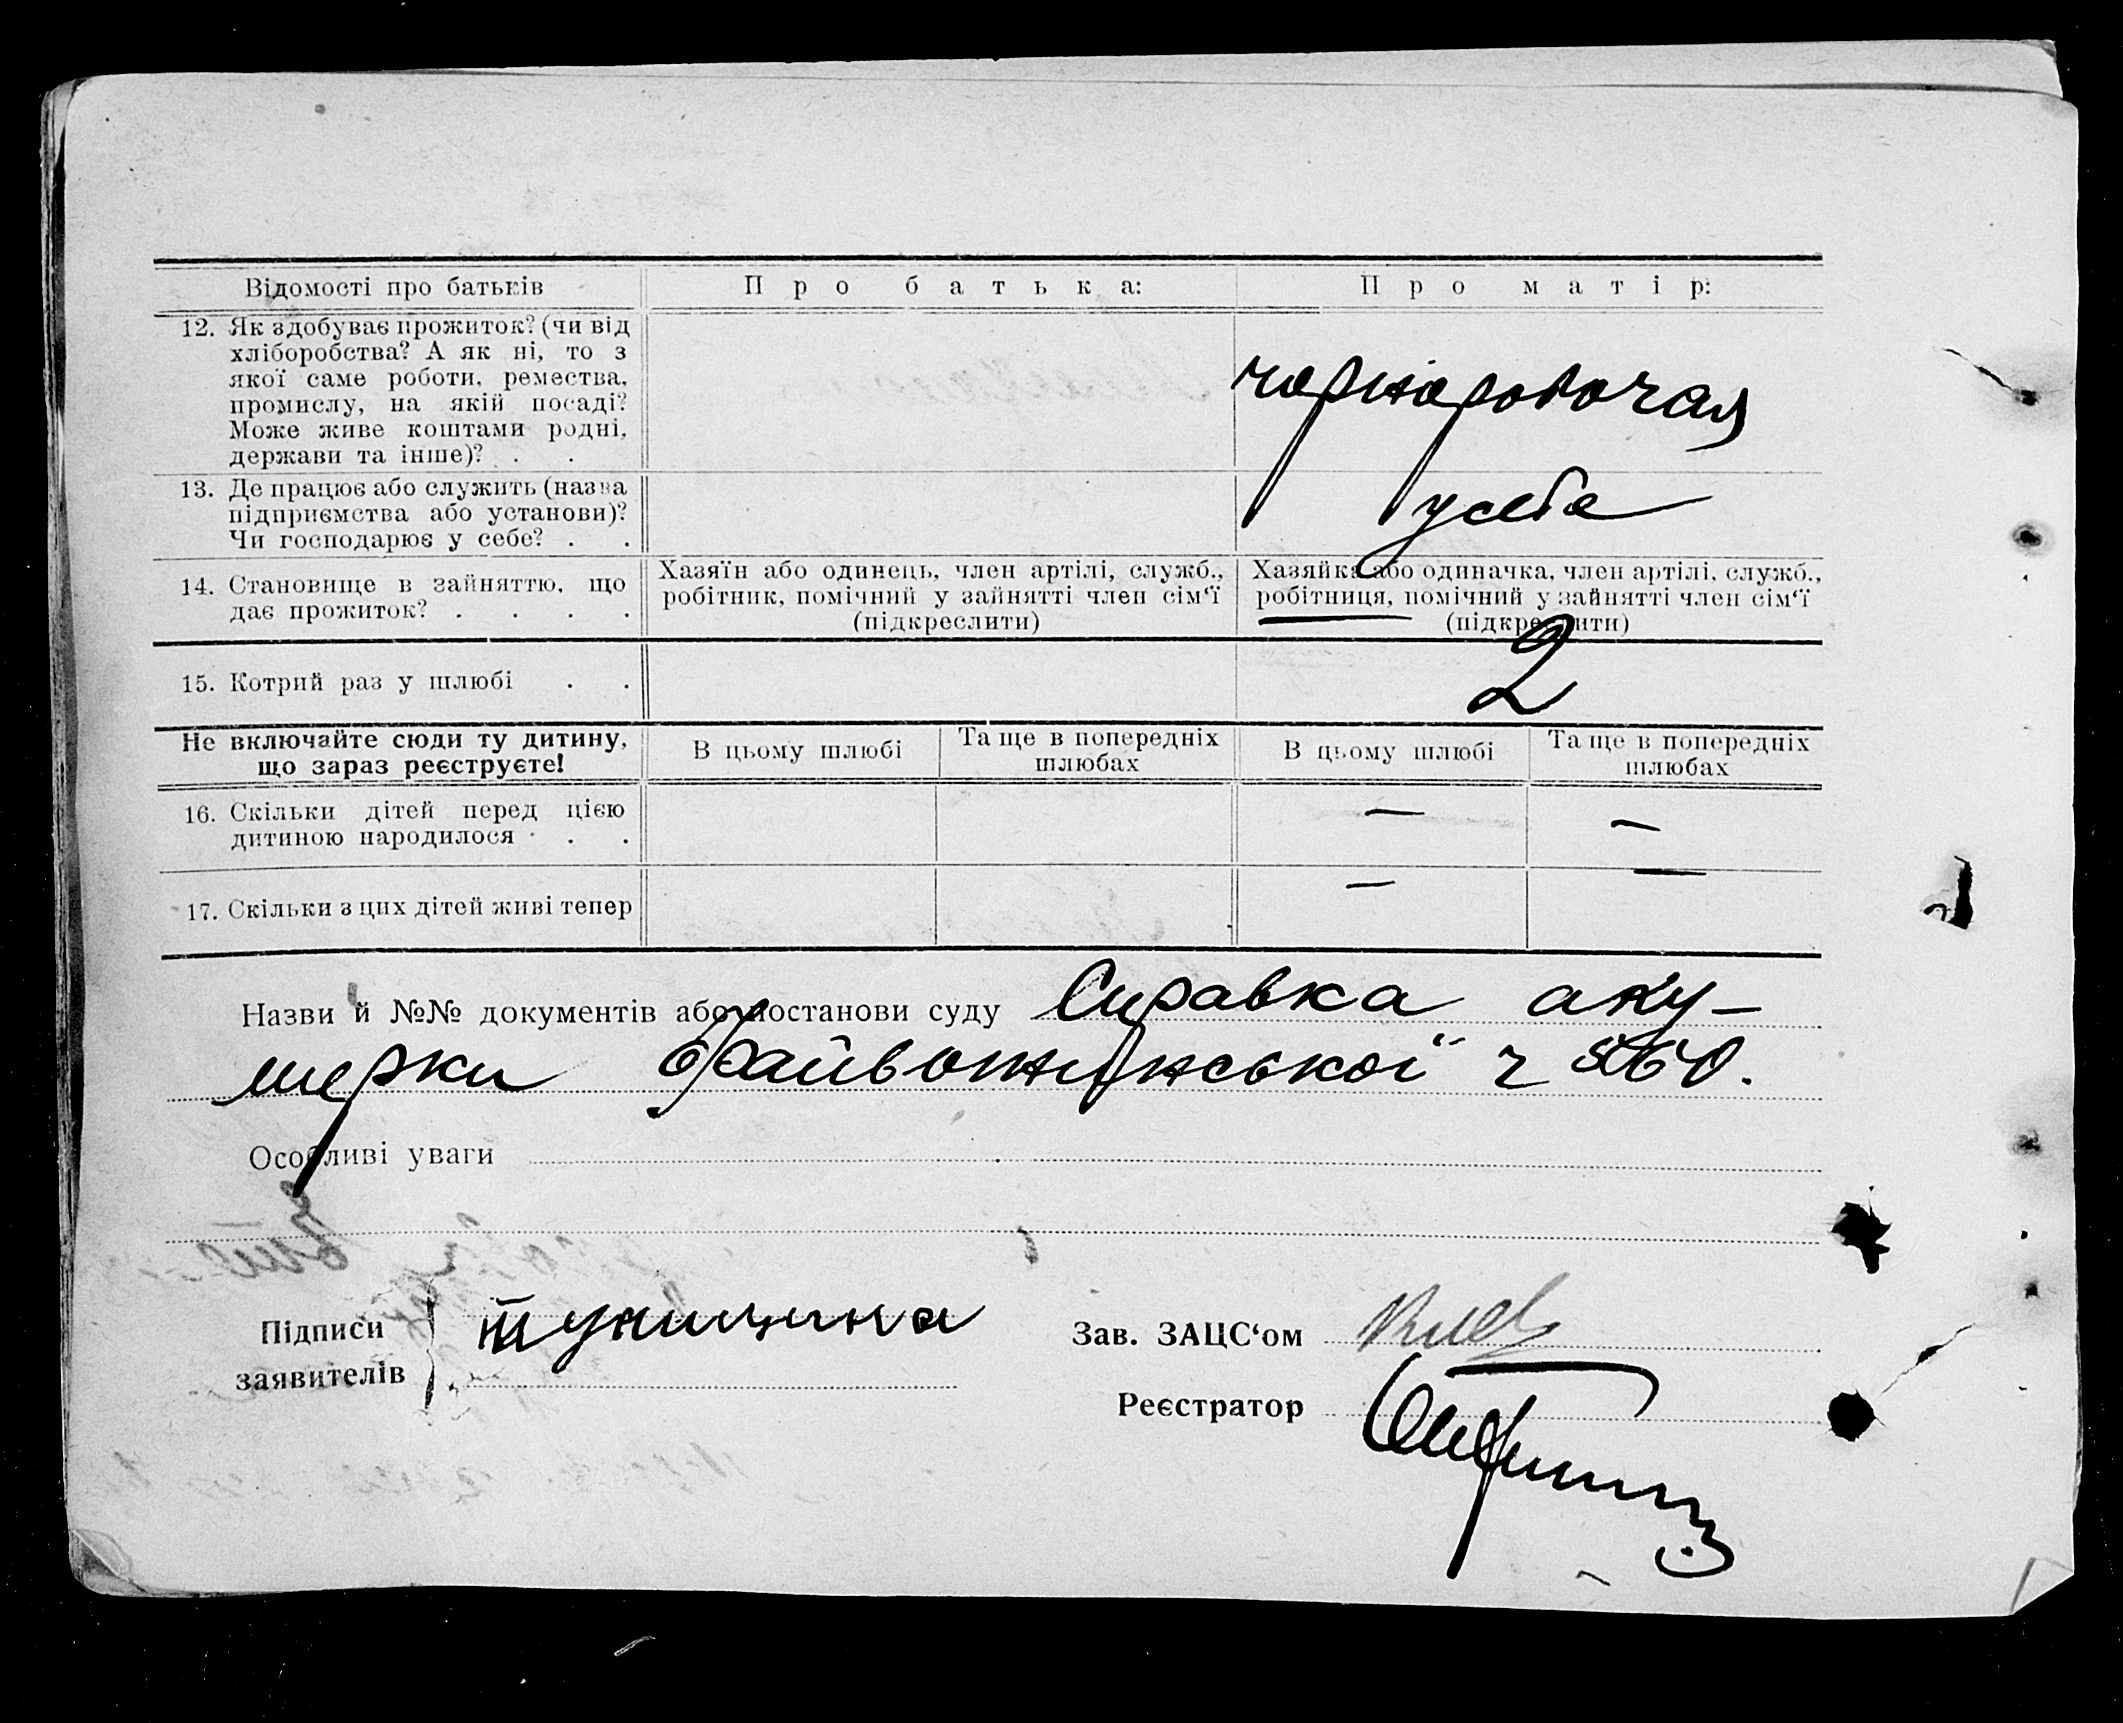 Відомості про батьків
Про батька:
Про матір:
12. Як здобуває прожиток? (чи від
хліборобства? А як ні, то з
якої саме роботи, ремества,
промислу, на якій посаді?
Може живе коштами родні,
держави та інше)? . .
чорноробочая
13. Де працює або служить (назва
підприємства або установи)?
Чи господарює у себе? . .
у себе
14. Становище в зайняттю, що
дає прожиток? . . . .
Хазяїн або одинець, член артілі, служб.,
робітник, помічний у зайнятті член сім‘ї
(підкреслити)
Хазяйка або одиначка, член артілі, служб.,
робітниця, помічний у зайнятті член сім‘ї
(підкреслити)
15. Котрий раз у шлюбі . .
2
Не включайте сюди ту дитину,
що зараз реєструєте!
В цьому шлюбі
Та ще в попередніх
шлюбах
В цьому шлюбі
Та ще в попередніх
шлюбах
16. Скільки дітей перед цією
дитиною народилося . . .
— —
17. Скільки з цих дітей живі тепер
— —
Назви й №№ документів або постанови суду Справка аку-
шерки ч 560.
Особливі уваги
Підписи
заявителів
Зав. ЗАЦС‘ом
Реєстратор